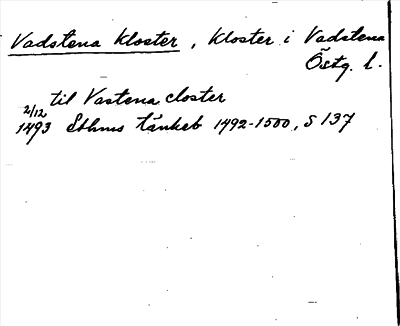 Vadstena kloster, kloster i Vadstena
Östg. l.
til Vastena closter
2/12
1493 Sthms tänkeb 1492-1500, S 137